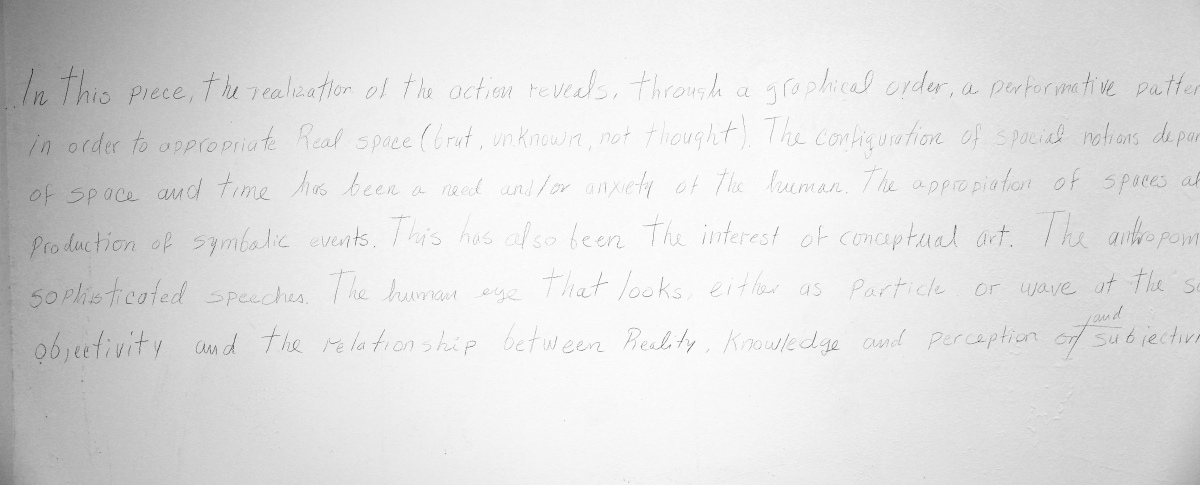 In this piece, the realization of the action reveals, through a graphical order, a performative patter
in order to appropriate Real space (brut, unknown, not thought). The configuration of spacial notions depar
of space and time has been a need and/or anxiety of the human. The appropiation of spaces al
Production of symbolic events. This has also been the interest of conceptual art. The antropom
sophisticated speeches. The human eye that looks, either as Particle or wave at the sa
objectivity and the relationship between Reality, Knowledge and perception of and subjectivi